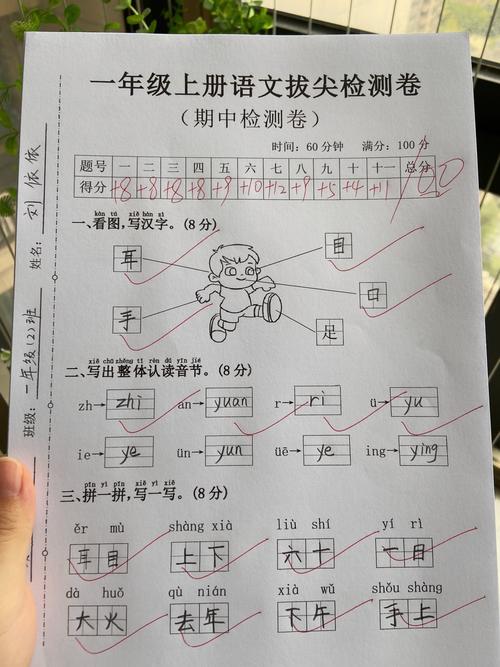 一年级上册语文拔尖检测卷
(期中检测卷)
时间：60分钟 满分：100分
题号 一 二 三 四 五 六 七 八 九 十 十一 总分
得分 +8 +8 +8 +8 +9 +10 +12 +9 +5 +4 +11 100
姓名：刘依依
班级：一年级(2)班
kàn tú xiě hàn zì
一、看图，写汉字。(8分)
耳 目
手 口
足
xiě chū zhěng tǐ rèn dú yīn jié
二、写出整体认读音节。(8分)
zh→zhi an→yuan r→ri ü→yu
ie→ye ün→yun üē→ye ing→ying
pīn yì pīn xiě yì xiě
三、拼一拼，写一写。(8分)
ěr mù shàng xià liù shí yí rì
耳目 上下 六十 一日
dà huǒ qù nián xià wǔ shǒu shàng
大火 去年 下午 手上